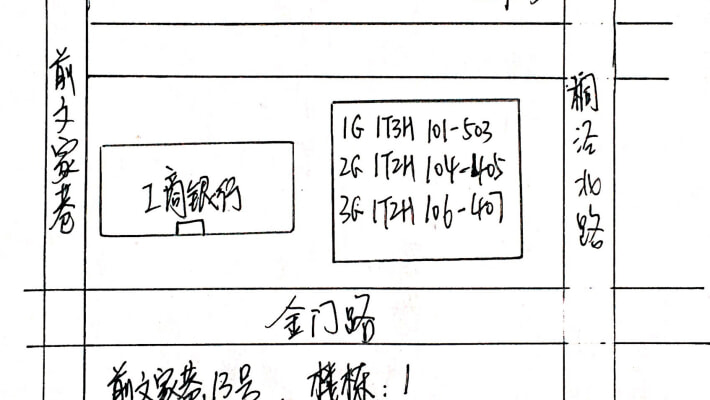 前文家巷
工商银行
1G 1T3H 101-503
2G 1T2H 104-405
3G 1T2H 106-407
北路
金门路
前文家巷13号，楼栋：1